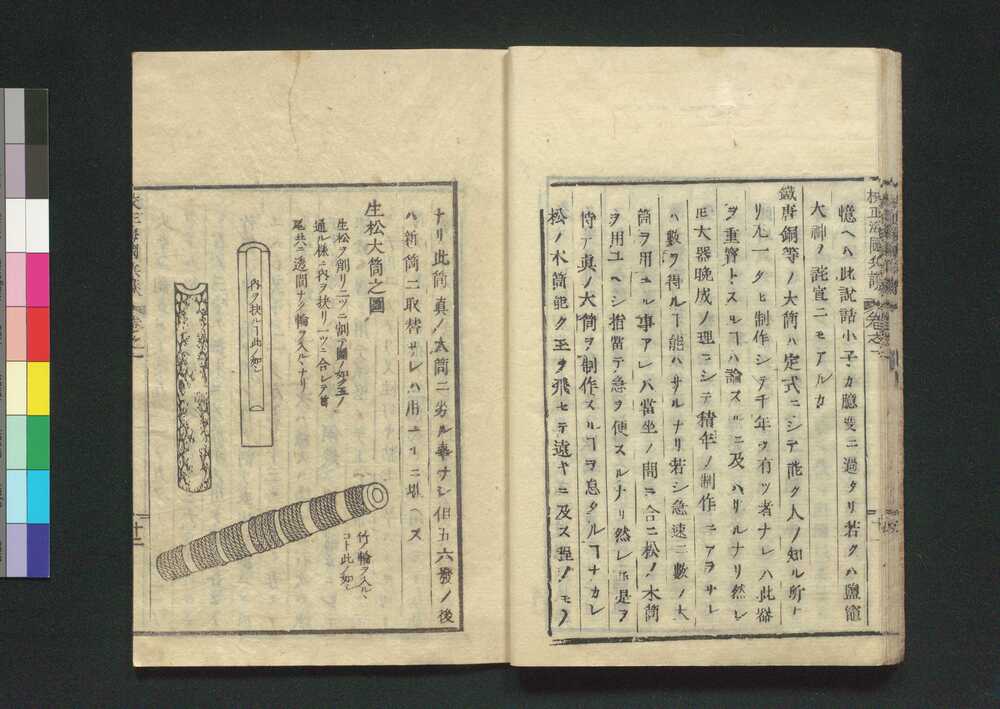 憶ヘハ此説話小子カ臆度ニ過タリ若クハ鹽竈
大神ノ託宣ニモアルカ
鐵唐銅等ノ大筒ハ定式ニシテ能ク人ノ知ル所ナ
リ尤一タヒ制作シテ千年ヲ有ツ者ナレハ此器
ヲ重寳トスルヿハ論スルニ及ハサルナリ然レ
𪜈大器晩成ノ理ニシテ積年ノ制作ニアラサレ
ハ數ヲ得ルヿ能ハサルナリ若シ急速ニ數ノ大
筒ヲ用ユル事アレバ當坐ノ間ニ合ニ松ノ木筒
ヲ用ユヘシ指當テ急ヲ便スルナリ然レ𪜈是ヲ
恃テ真ノ大筒ヲ制作スルヿヲ怠タルヿナカレ
松ノ木筒能ク玉ヲ飛セテ遠キニ及ス程ノモノ
ナリ此筒真ノ大筒ニ劣ル事ナシ但五六發ノ後
ハ新筒ニ取替サレハ用ユルニ堪ヘス
生松大筒之圖
生松ヲ削リ二ツニ割テ圖ノ如ク玉ノ
通ル樣ニ内ヲ抉リ一ツニ合レテ首
尾共ニ透間ナク輪ヲ入ルヽナリ
内ヲ抉ルヿ此ノ如シ
竹輪ヲ入ルヽ
コト此ノ如シ